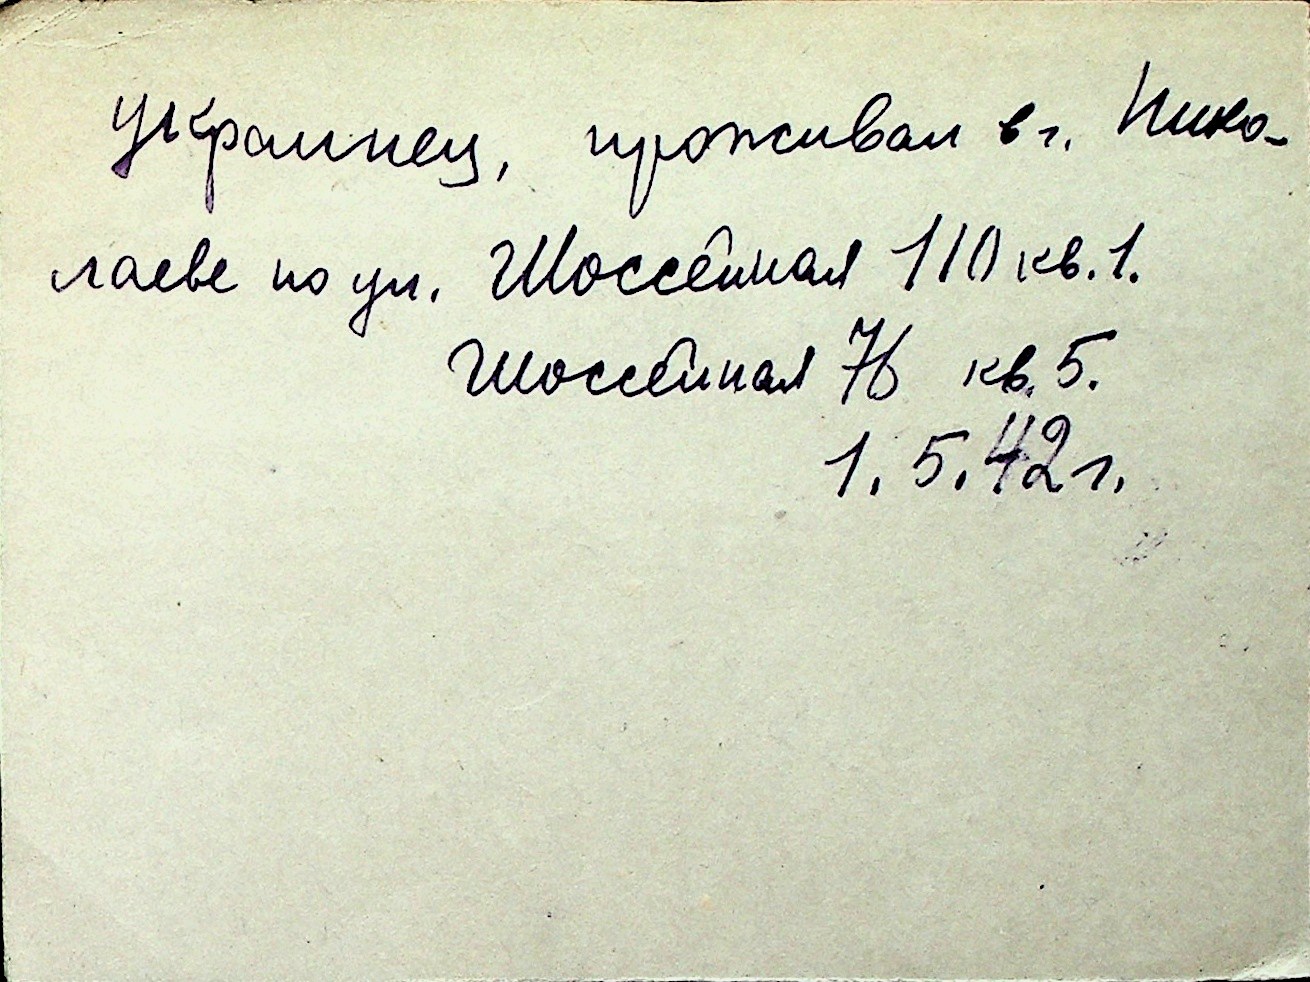 украинец, проживал в г. Нико-
лаеве по ул. Шоссейная 110 кв. 1.
Шоссейная 76 кв. 5.
1. 5. 42 г.